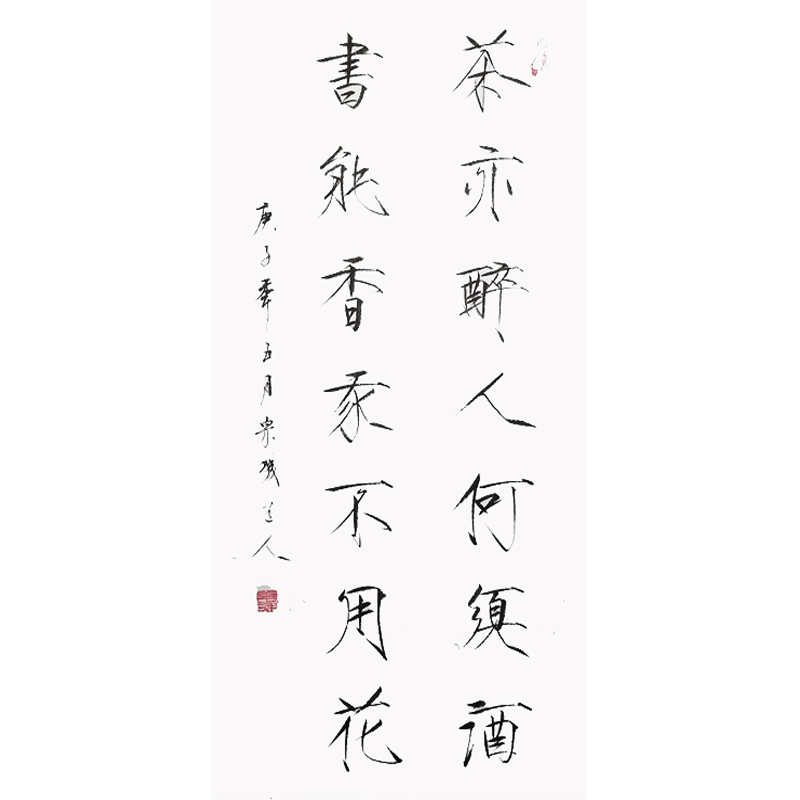 茶亦醉人何須酒
書能香家不用花
庚子季五月道人